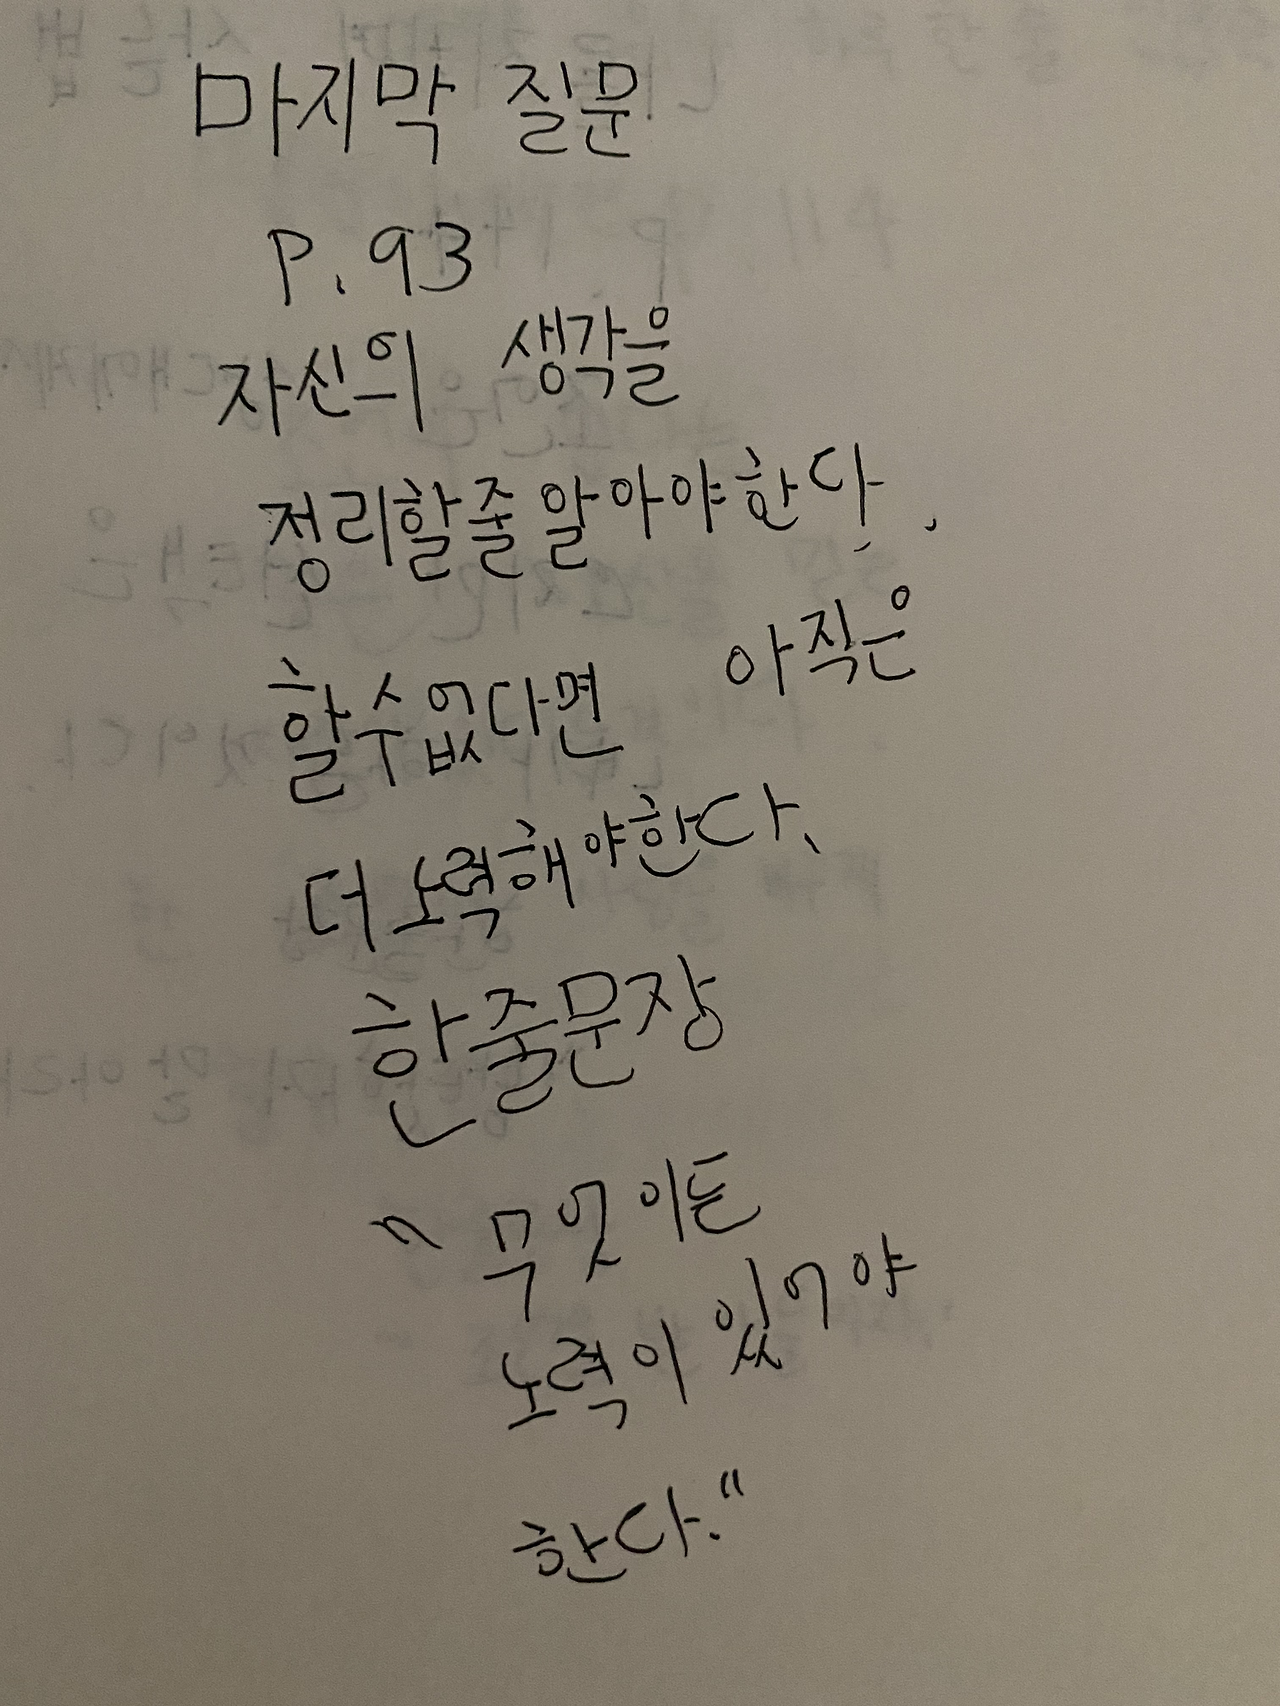 마지막 질문
P. 93
자신의 생각을
정리할줄 알아야한다.
할수없다면 아직은
더 노력해야한다.
한줄문장
" 무엇이든
노력이 있어야
한다."